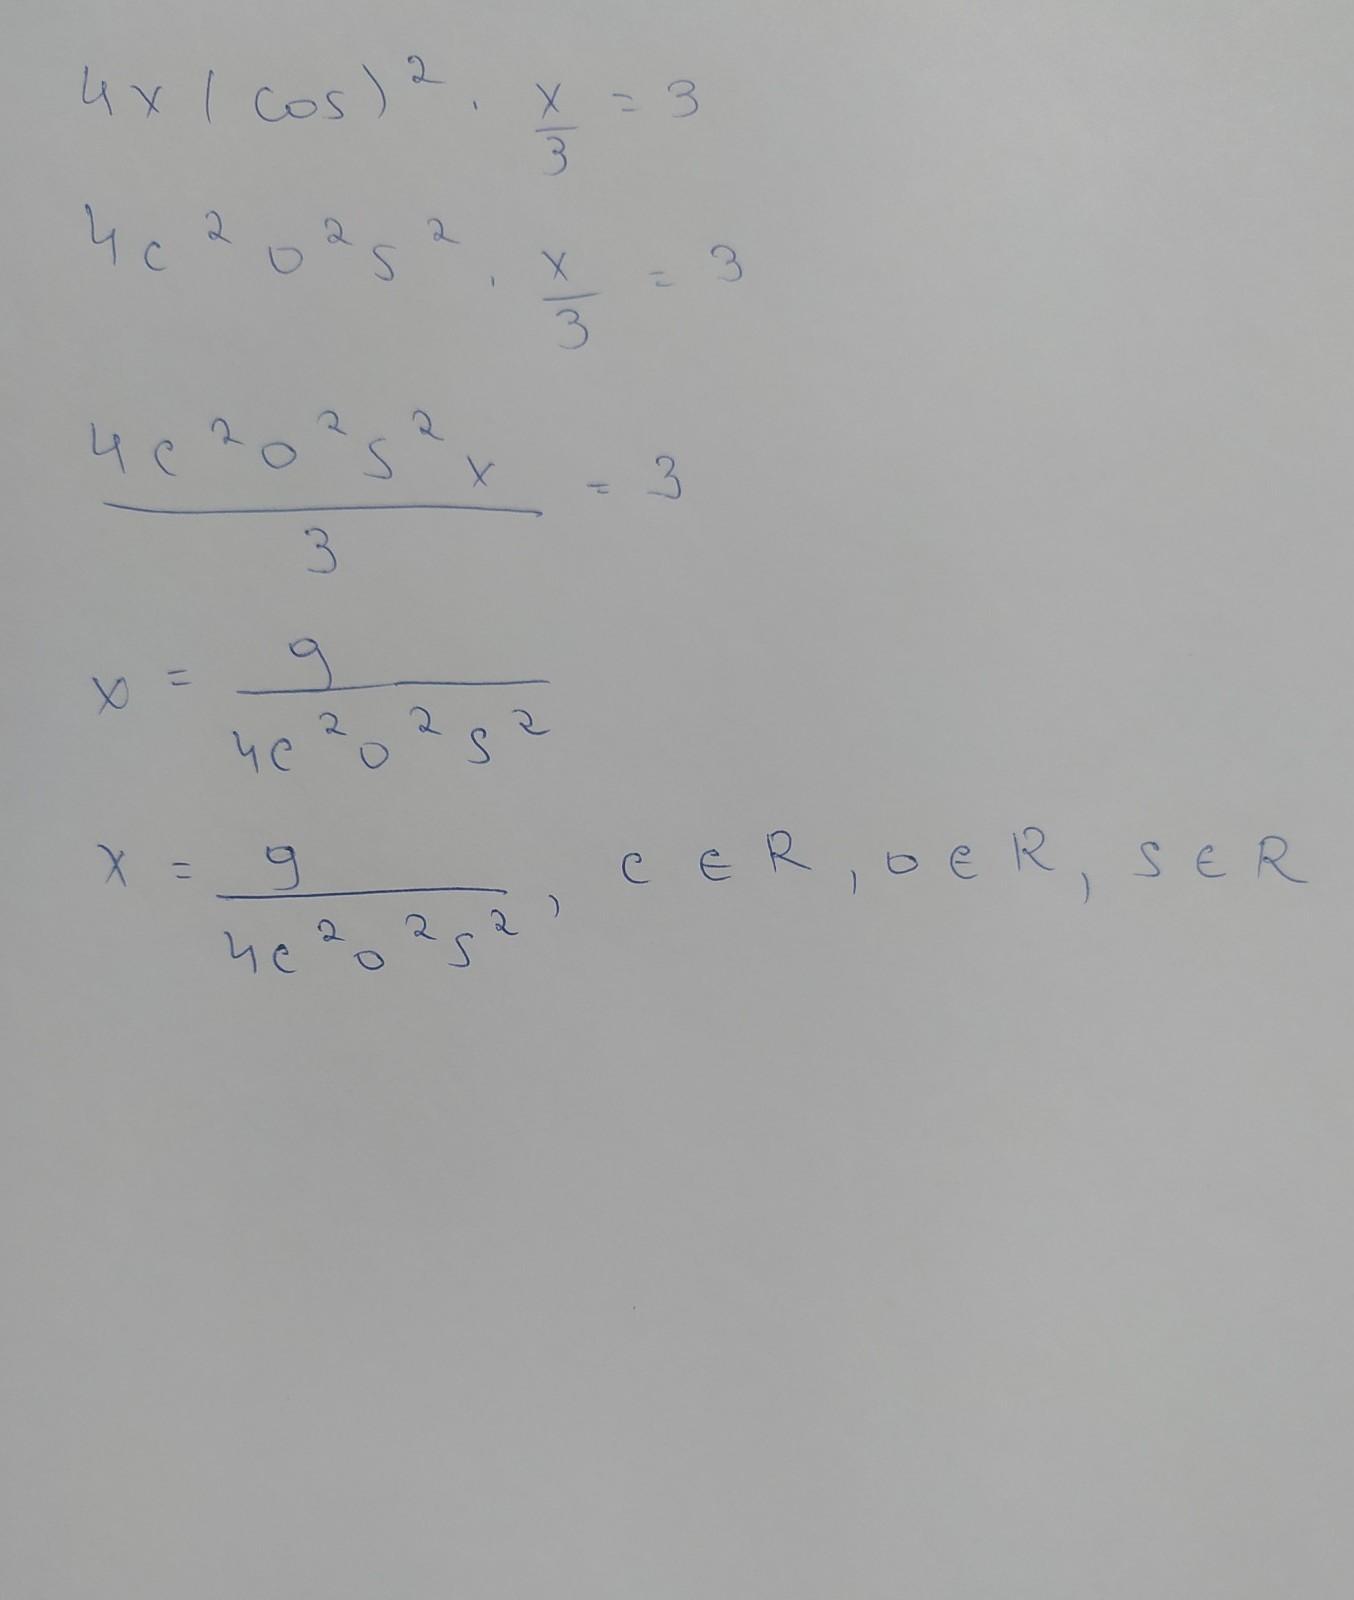 4x(cos)² · x/3 = 3
4c²o²s² · x/3 = 3
4c²o²s²x/3 = 3
x = 9/4c²o²s²
x = 9/4c²o²s², c ∈ R, o ∈ R, s ∈ R